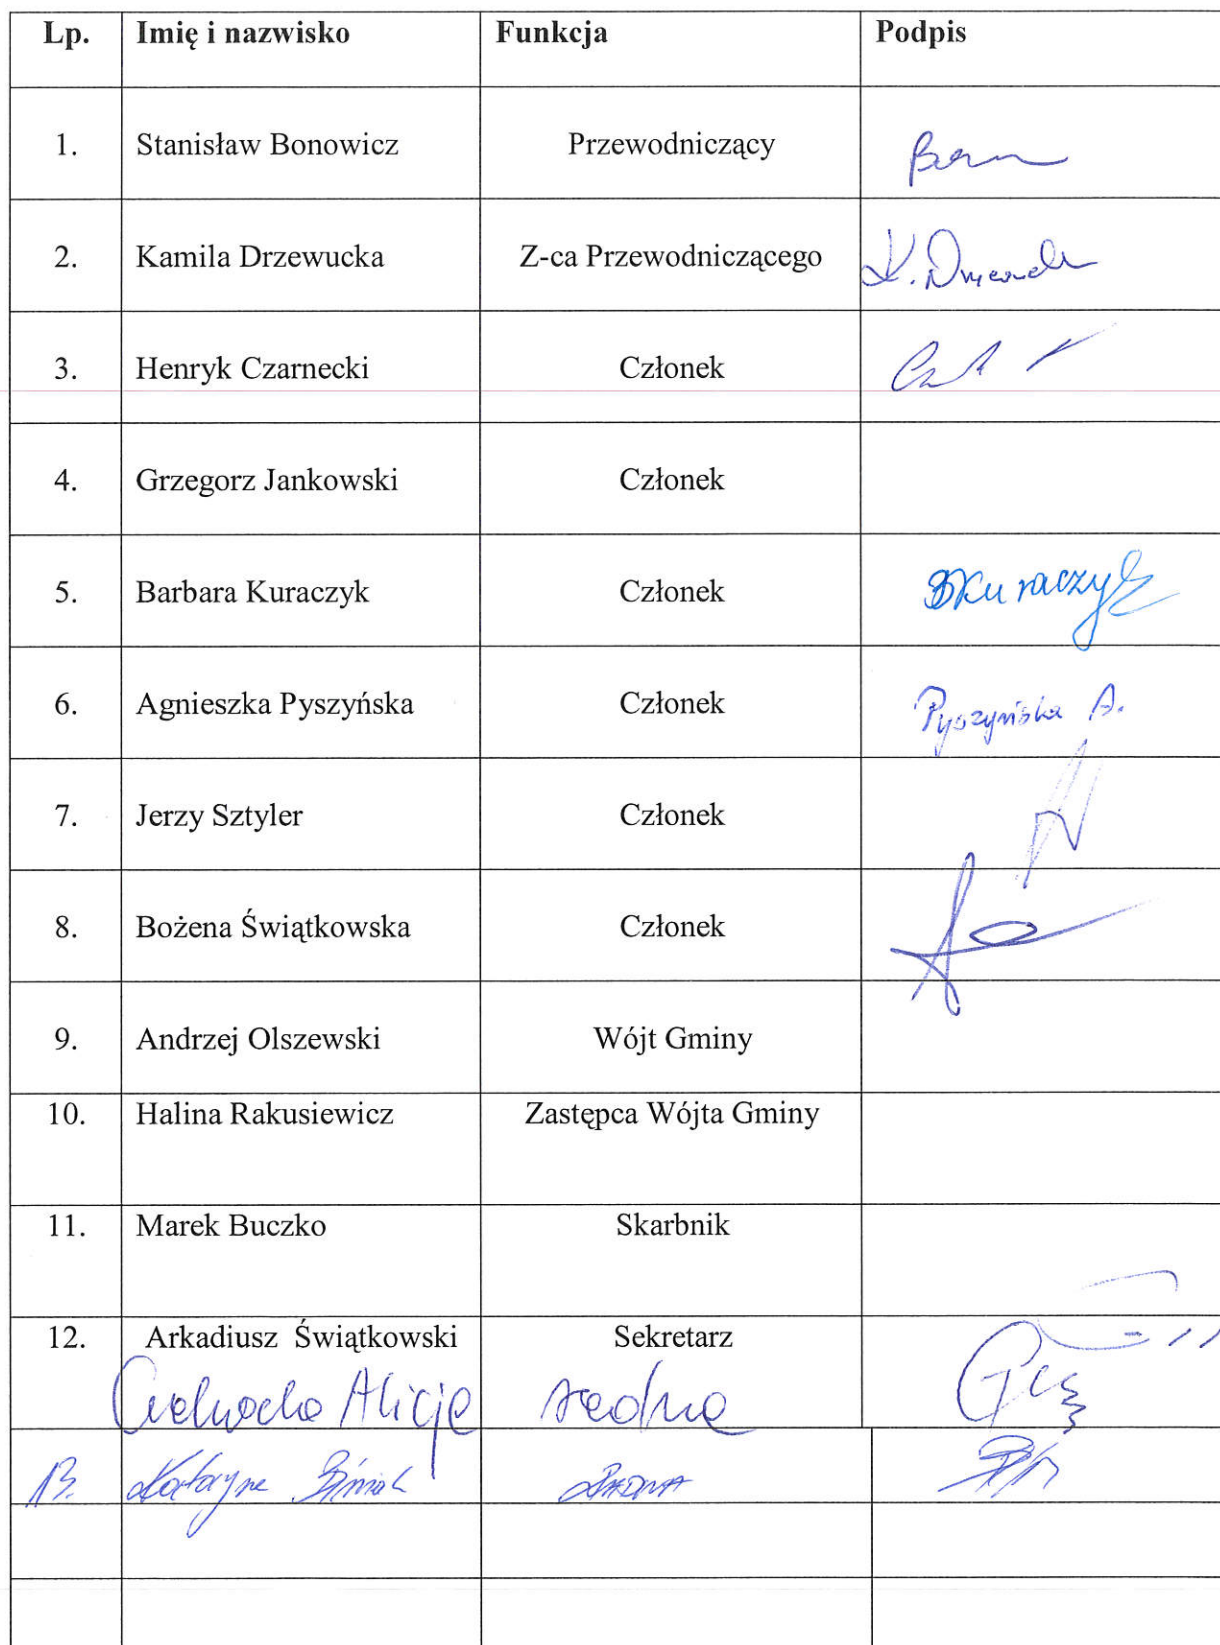 Lp. Imię i nazwisko Funkcja Podpis
1. Stanisław Bonowicz Przewodniczący
2. Kamila Drzewucka Z-ca Przewodniczącego
3. Henryk Czarnecki Członek
4. Grzegorz Jankowski Członek
5. Barbara Kuraczyk Członek BKuraczyk
6. Agnieszka Pyszyńska Członek Pyszyńska A.
7. Jerzy Sztyler Członek
8. Bożena Świątkowska Członek
9. Andrzej Olszewski Wójt Gminy
10. Halina Rakusiewicz Zastępca Wójta Gminy
11. Marek Buczko Skarbnik
12. Arkadiusz Świątkowski Sekretarz
Alicja radna
13. Katarzyna RADNA